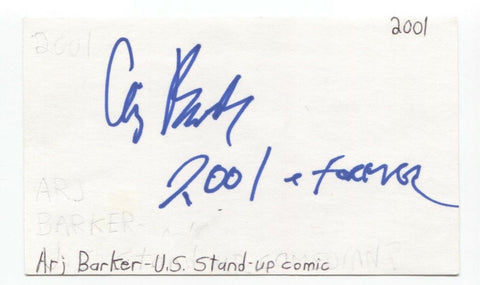 2001
2001
Arj Barker
2001 + forever
ARJ
BARKER-
COMEDIAN?
Arj Barker-U.S. Stand-up comic